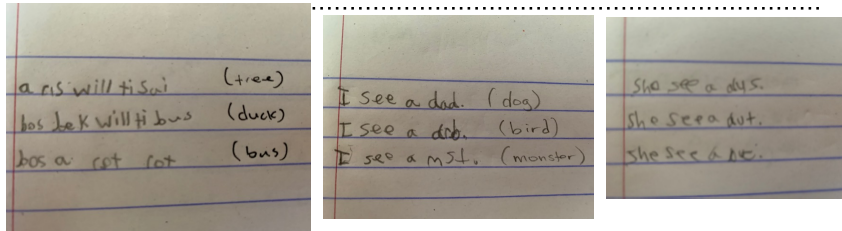 a ris will ti sai (tree)
bos bek will ti bus (duck)
bos a cot cot (bus)
I see a dad. (dog)
I see a drb. (bird)
I see a mst. (monster)
she see a dus.
she see a dut.
she see a